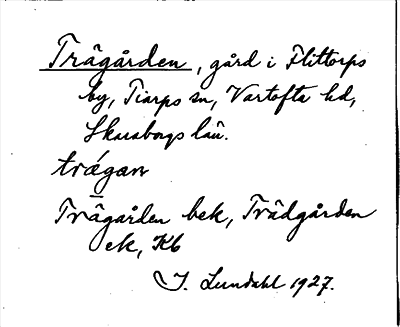 Trägården, gård i Flittorps
by, Tiarps sn, Vartofta hd,
Skaraborgs län.
trágan
Trägården bek, Trädgården
ek, Kb
I. Lundahl 1927.